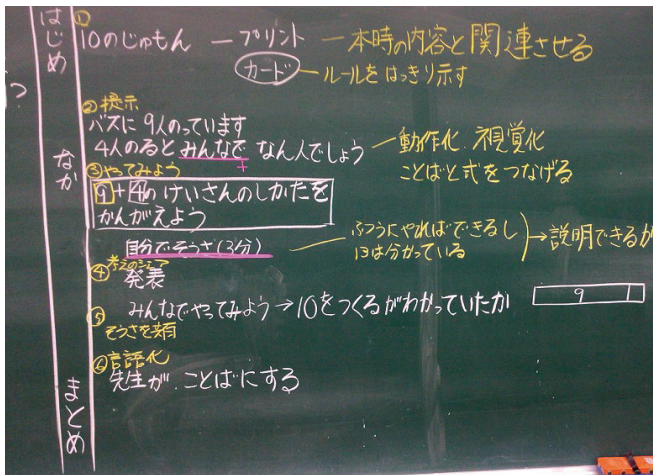 はじめ
①
10のじゅもん ― プリント ― 本時の内容と関連させる
カード ― ルールをはっきり示す
なか
②提示
バスに 9人のっています
4人のると みんなで なん人でしょう
+
動作化 視覚化
ことばと式をつなげる
③やってみよう
9+4の けいさんのしかたを
かんがえよう
自分でそうさ(3分)
ふつうにやればできるし
13は分かっている
→説明できるか
④考えのシェア
発表
⑤みんなでやってみよう→10をつくるがわかっていたか
9
そうさを
⑥言語化
先生が ことばにする
まとめ